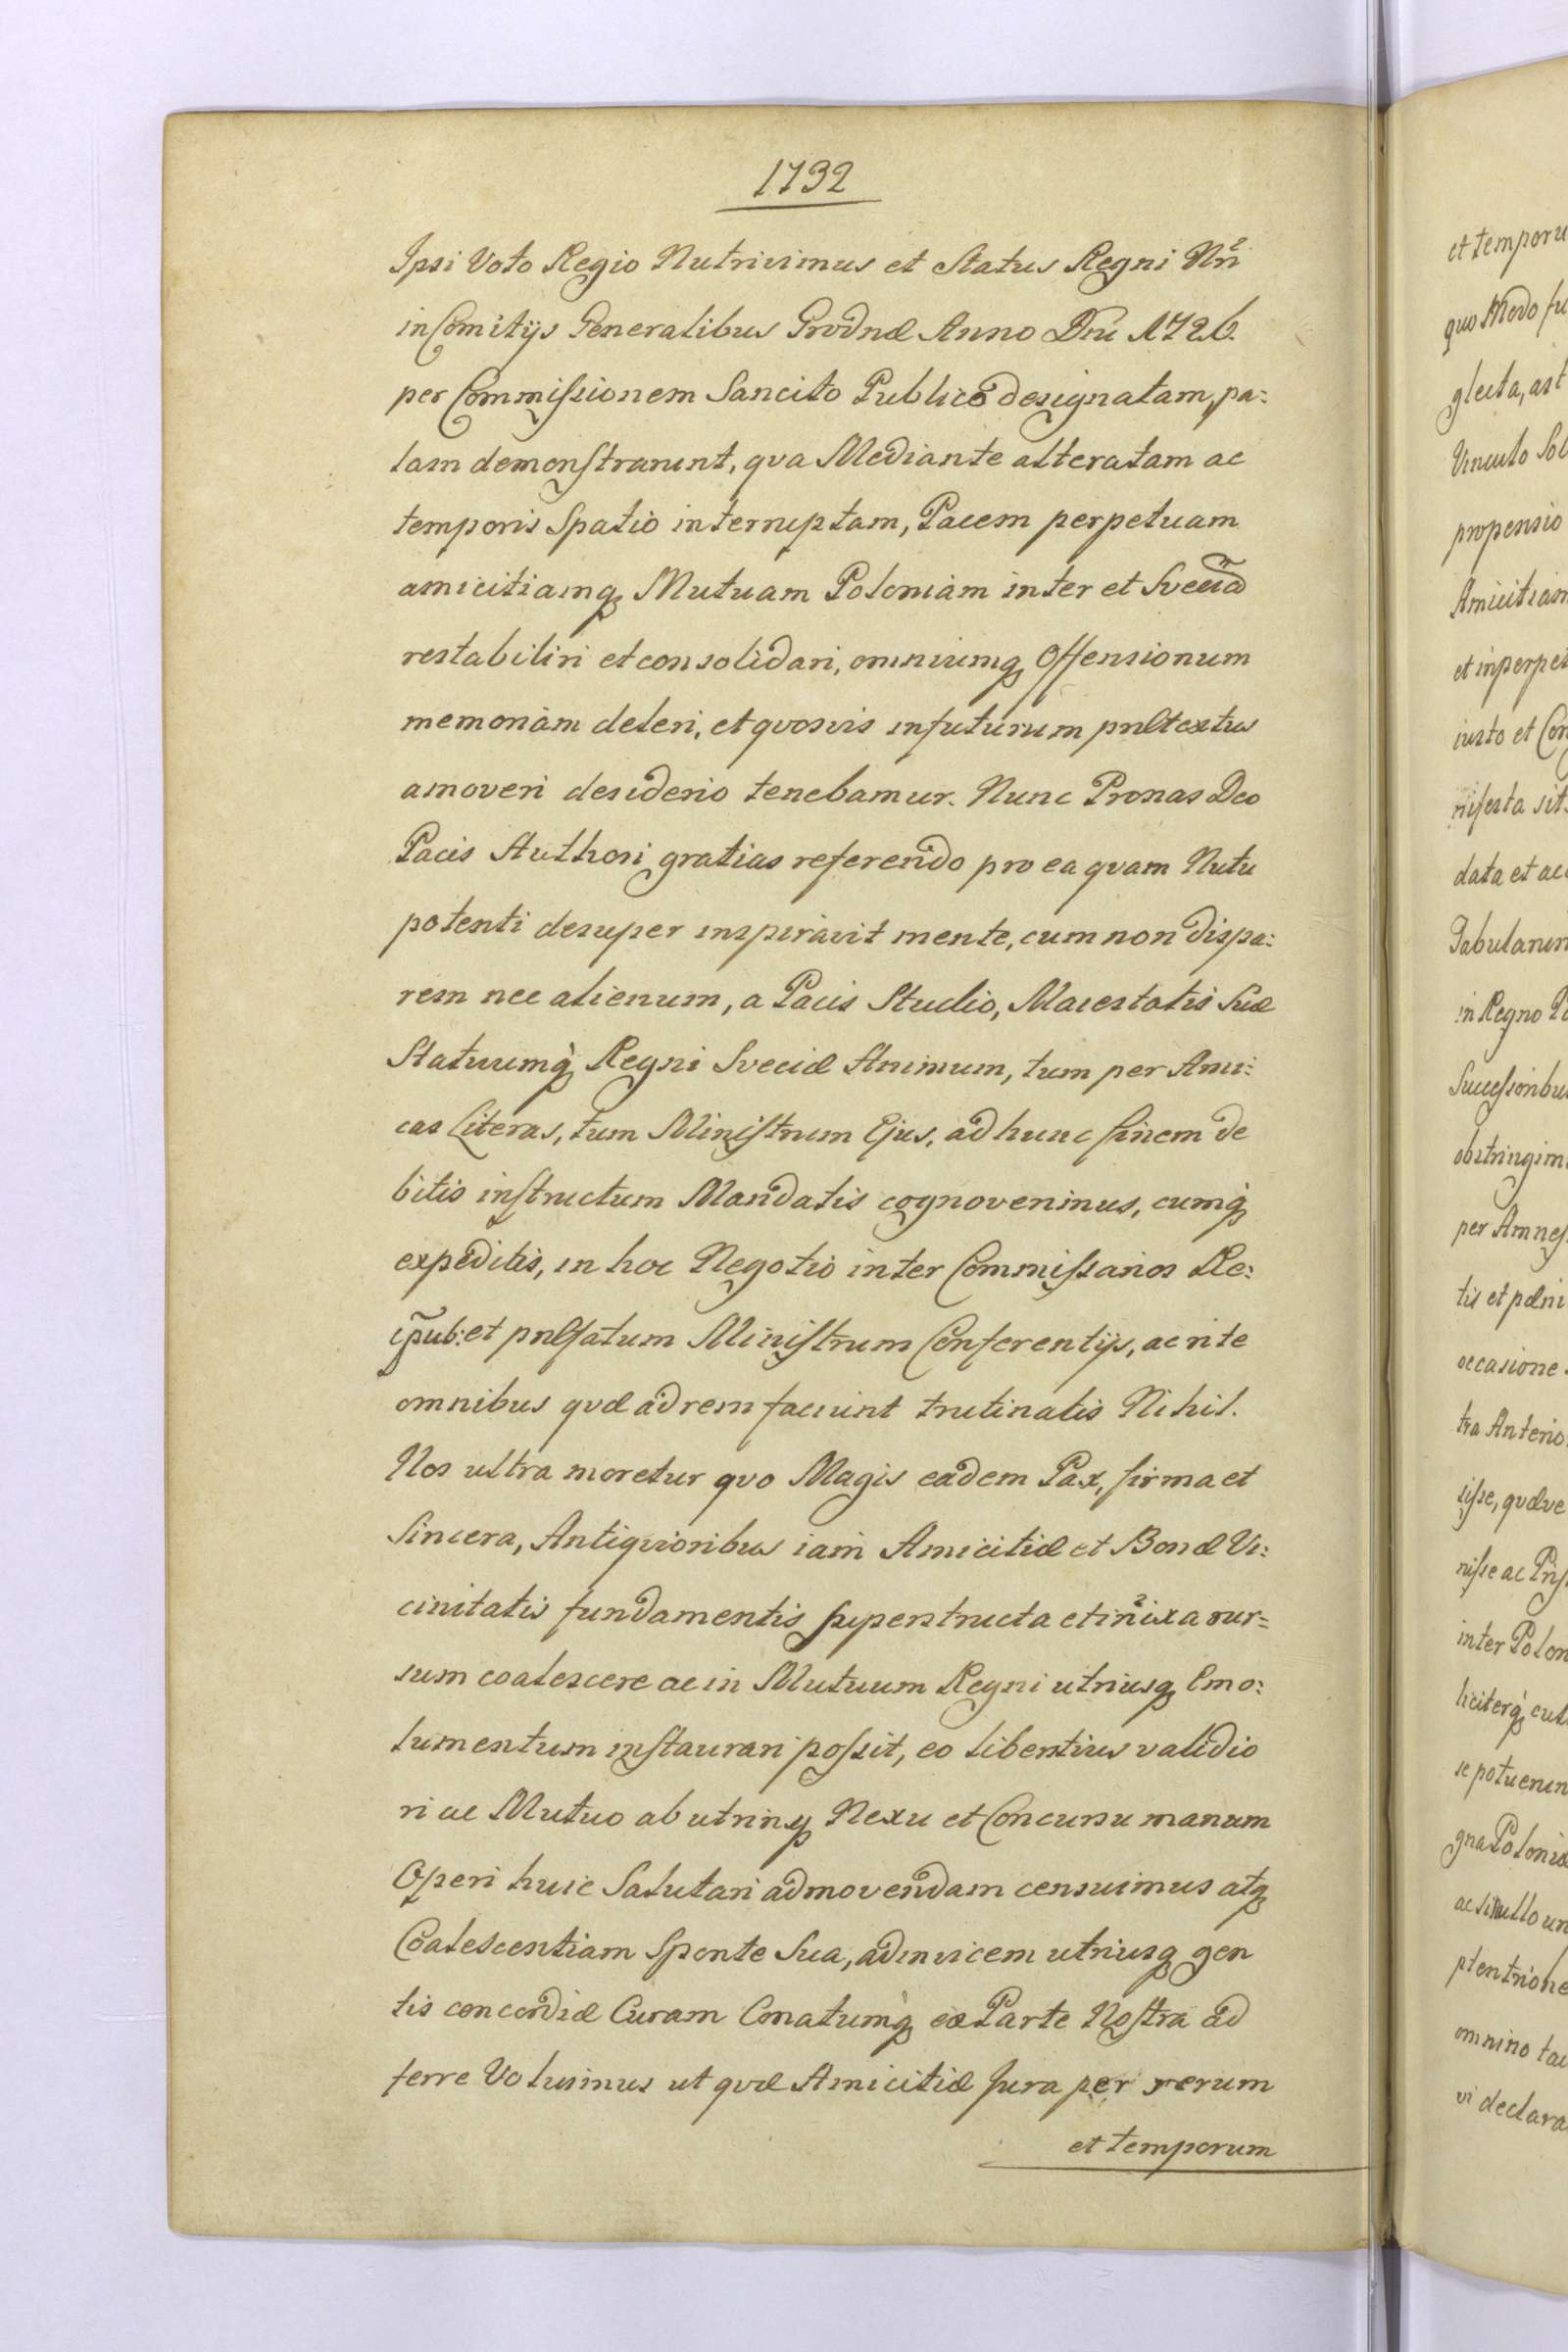 1732
Ipsi Voto Regio Nutrivimus et Status Regni Nri
in Comitijs Generalibus Grodnæ Anno Dni 1726.
per Commissionem Sancito Publico designatam, pa:
lam demonstrarunt, qva Mediante alteratam ac
temporis Spatio interruptam, Pacem perpetuam
amicitiamq Mutuam Poloniam inter et Sveciã
restabiliri et consolidari, omniumq Offensionum
memoriam deleri, et qvosvis in futurum prætextus
amoveri desiderio tenebamur. Nunc Pronas Deo
Pacis Authori gratias referendo pro ea qvam Nutu
potenti desuper inspiravit mente, cum non dispa:
rem nec alienum, a Pacis Studio, Maiestatis Suæ
Statuumq Regni Sveciæ Animum, tum per Ami:
cas Literas, tum Ministrum Ejus, ad hunc finem de
bitis instructum Mandatis cognoverimus, cumq
expeditis, in hoc Negotio inter Commissarios Re:
ipub: et præfatum Ministrum Conferentijs, ac rite
omnibus qvæ ad rem faciunt trutinatis Nihil.
Nos ultra moretur qvo Magis eadem Pax, firma et
Sincera, Antiqvioribus iam Amicitiæ et Bonæ Vi:
cinitatis fundamentis superstructa et inixa rur=
sum coalescere ac in Mutuum Regni utriusq Emo:
lumentum instaurari possit, eo libentius validio
ri ac Mutuo ab utrinq Nexu et Concursu manum
Operi huic Salutari admovendam censuimus atq
Coalescentiam Sponte Sua, ad invicem utriusq gen
tis concordiæ Curam Conatumq ex Parte Nostra ad
ferre Voluimus ut qvæ Amicitiæ Jura per rerum
et temporum
et temporu
quo Modo fu
glecta, ast
Vinculo Sol
propensio
Amicitiam
et in perpet
iusto et Con
nifesta sit
data et acc
Tabularum
in Regno Po
Successionibus
obstringim
per Amnes
tis et pæni
occasione
tra Anterio
sisse, qvæve
nisse ac Pris
inter Polon
liciterq cul
se potuerin
gna Poloniæ
ac si nullo un
ptentrione
omnino tac
vi declara